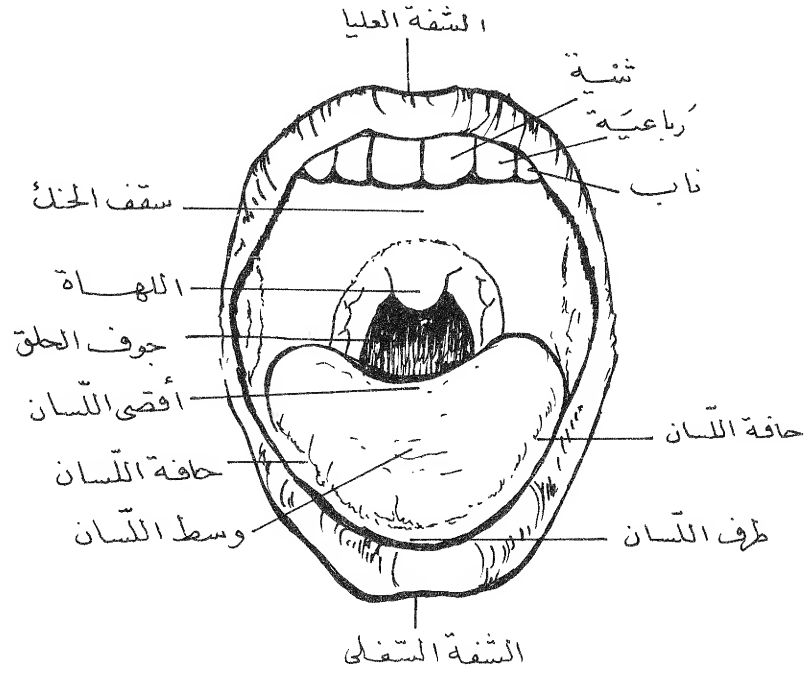 الشفة العليا
ثنية
رَباعيَة
ناب
سقف الحنك
اللهاة
جوف الحلق
أقصى اللّسان
حافة اللّسان
حافة اللّسان
وسط اللّسان
طرف اللّسان
الشفة السّفلى